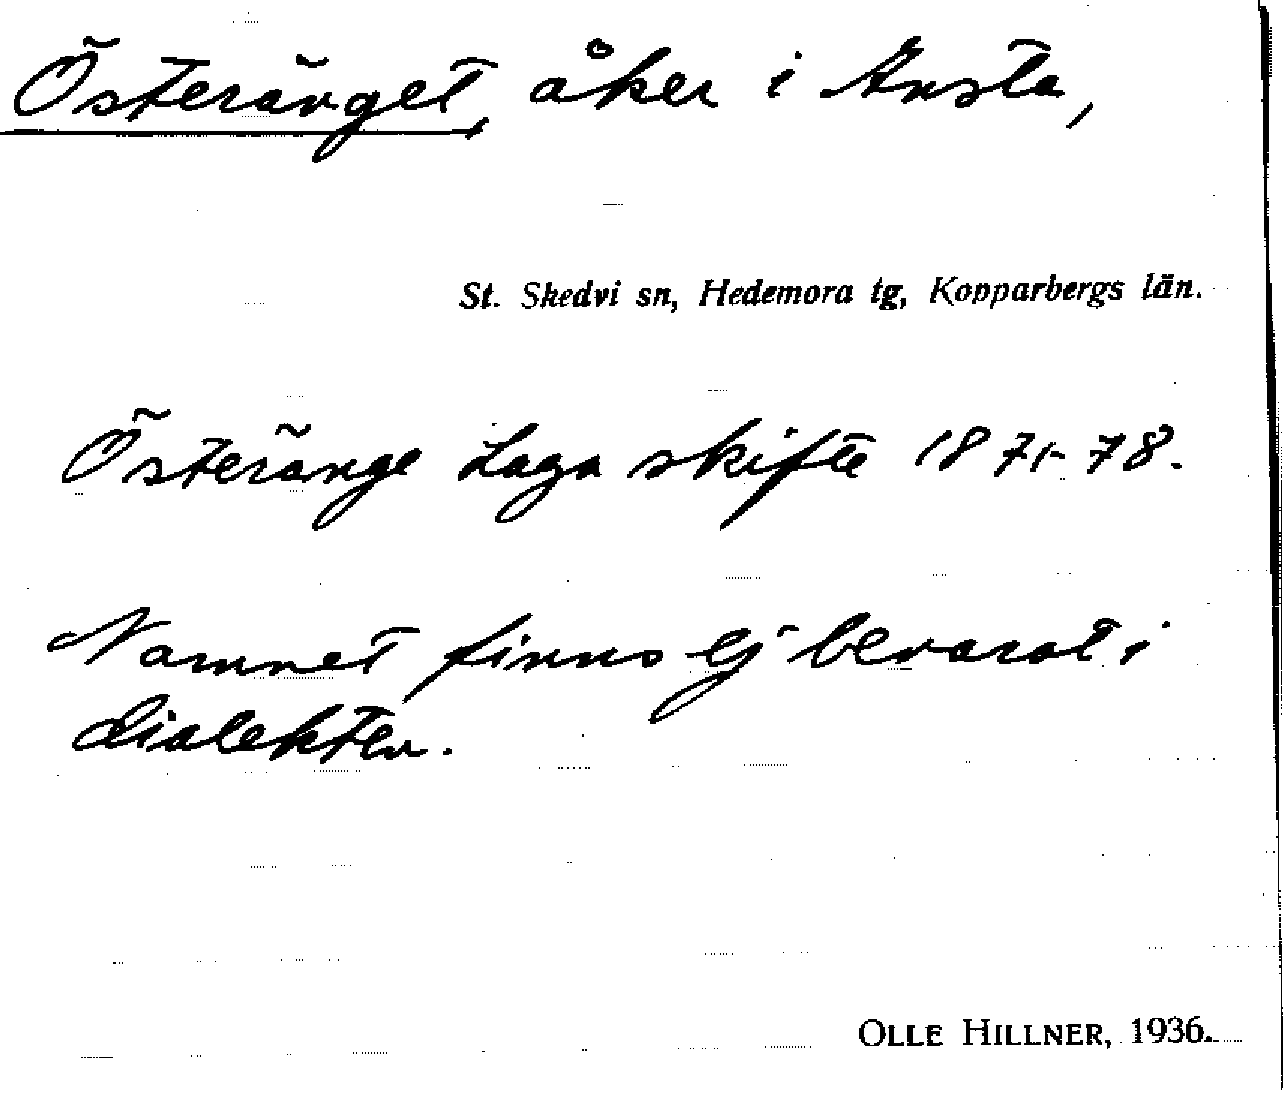 Österänget, åker i Ansta,
St. Skedvi sn, Hedemora tg, Kopparbergs län.
Österänge Laga skifte 1871-78.
Namnet finns ej bevarat i
dialekten.
OLLE HILLNER, 1936.